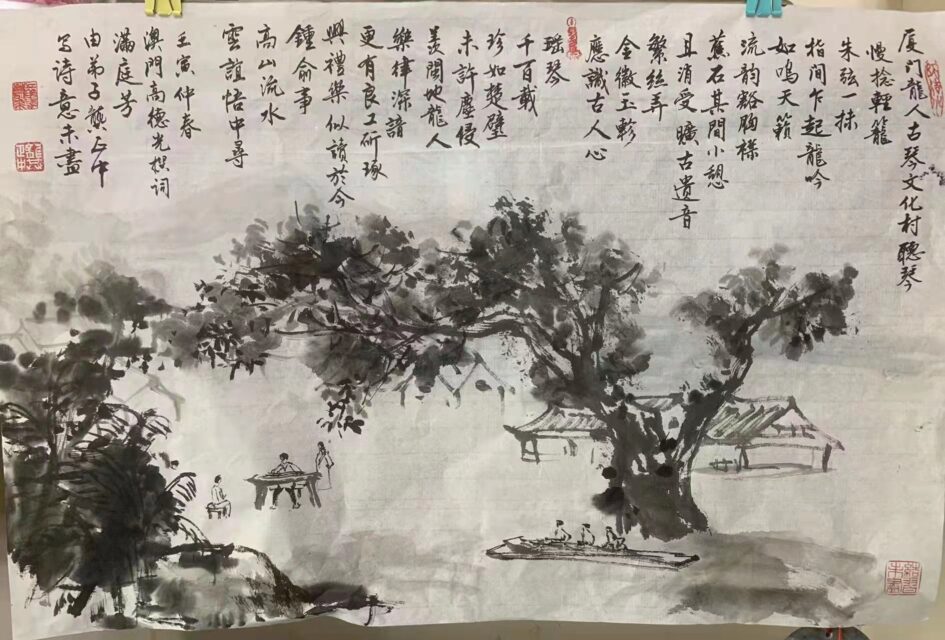 厦门龍人古琴文化村聽琴
慢捻輕籠
朱弦一抹
指间乍起龍吟
如鳴天籟
流韵豁胸襟
蕉石其間小憩
且消受曠古遺音
繁丝弄
金徽玉軫
應識古人心
瑶琴
千百載
珍如楚璧
未許塵侵
羡閩地龍人
樂律深諳
更有良工研琢
興禮樂似讀於今
鍾俞事
高山流水
雲誼悟中尋
壬寅仲春
澳門高德光撰词
滿庭芳
由弟子龔上中
写诗意未盡